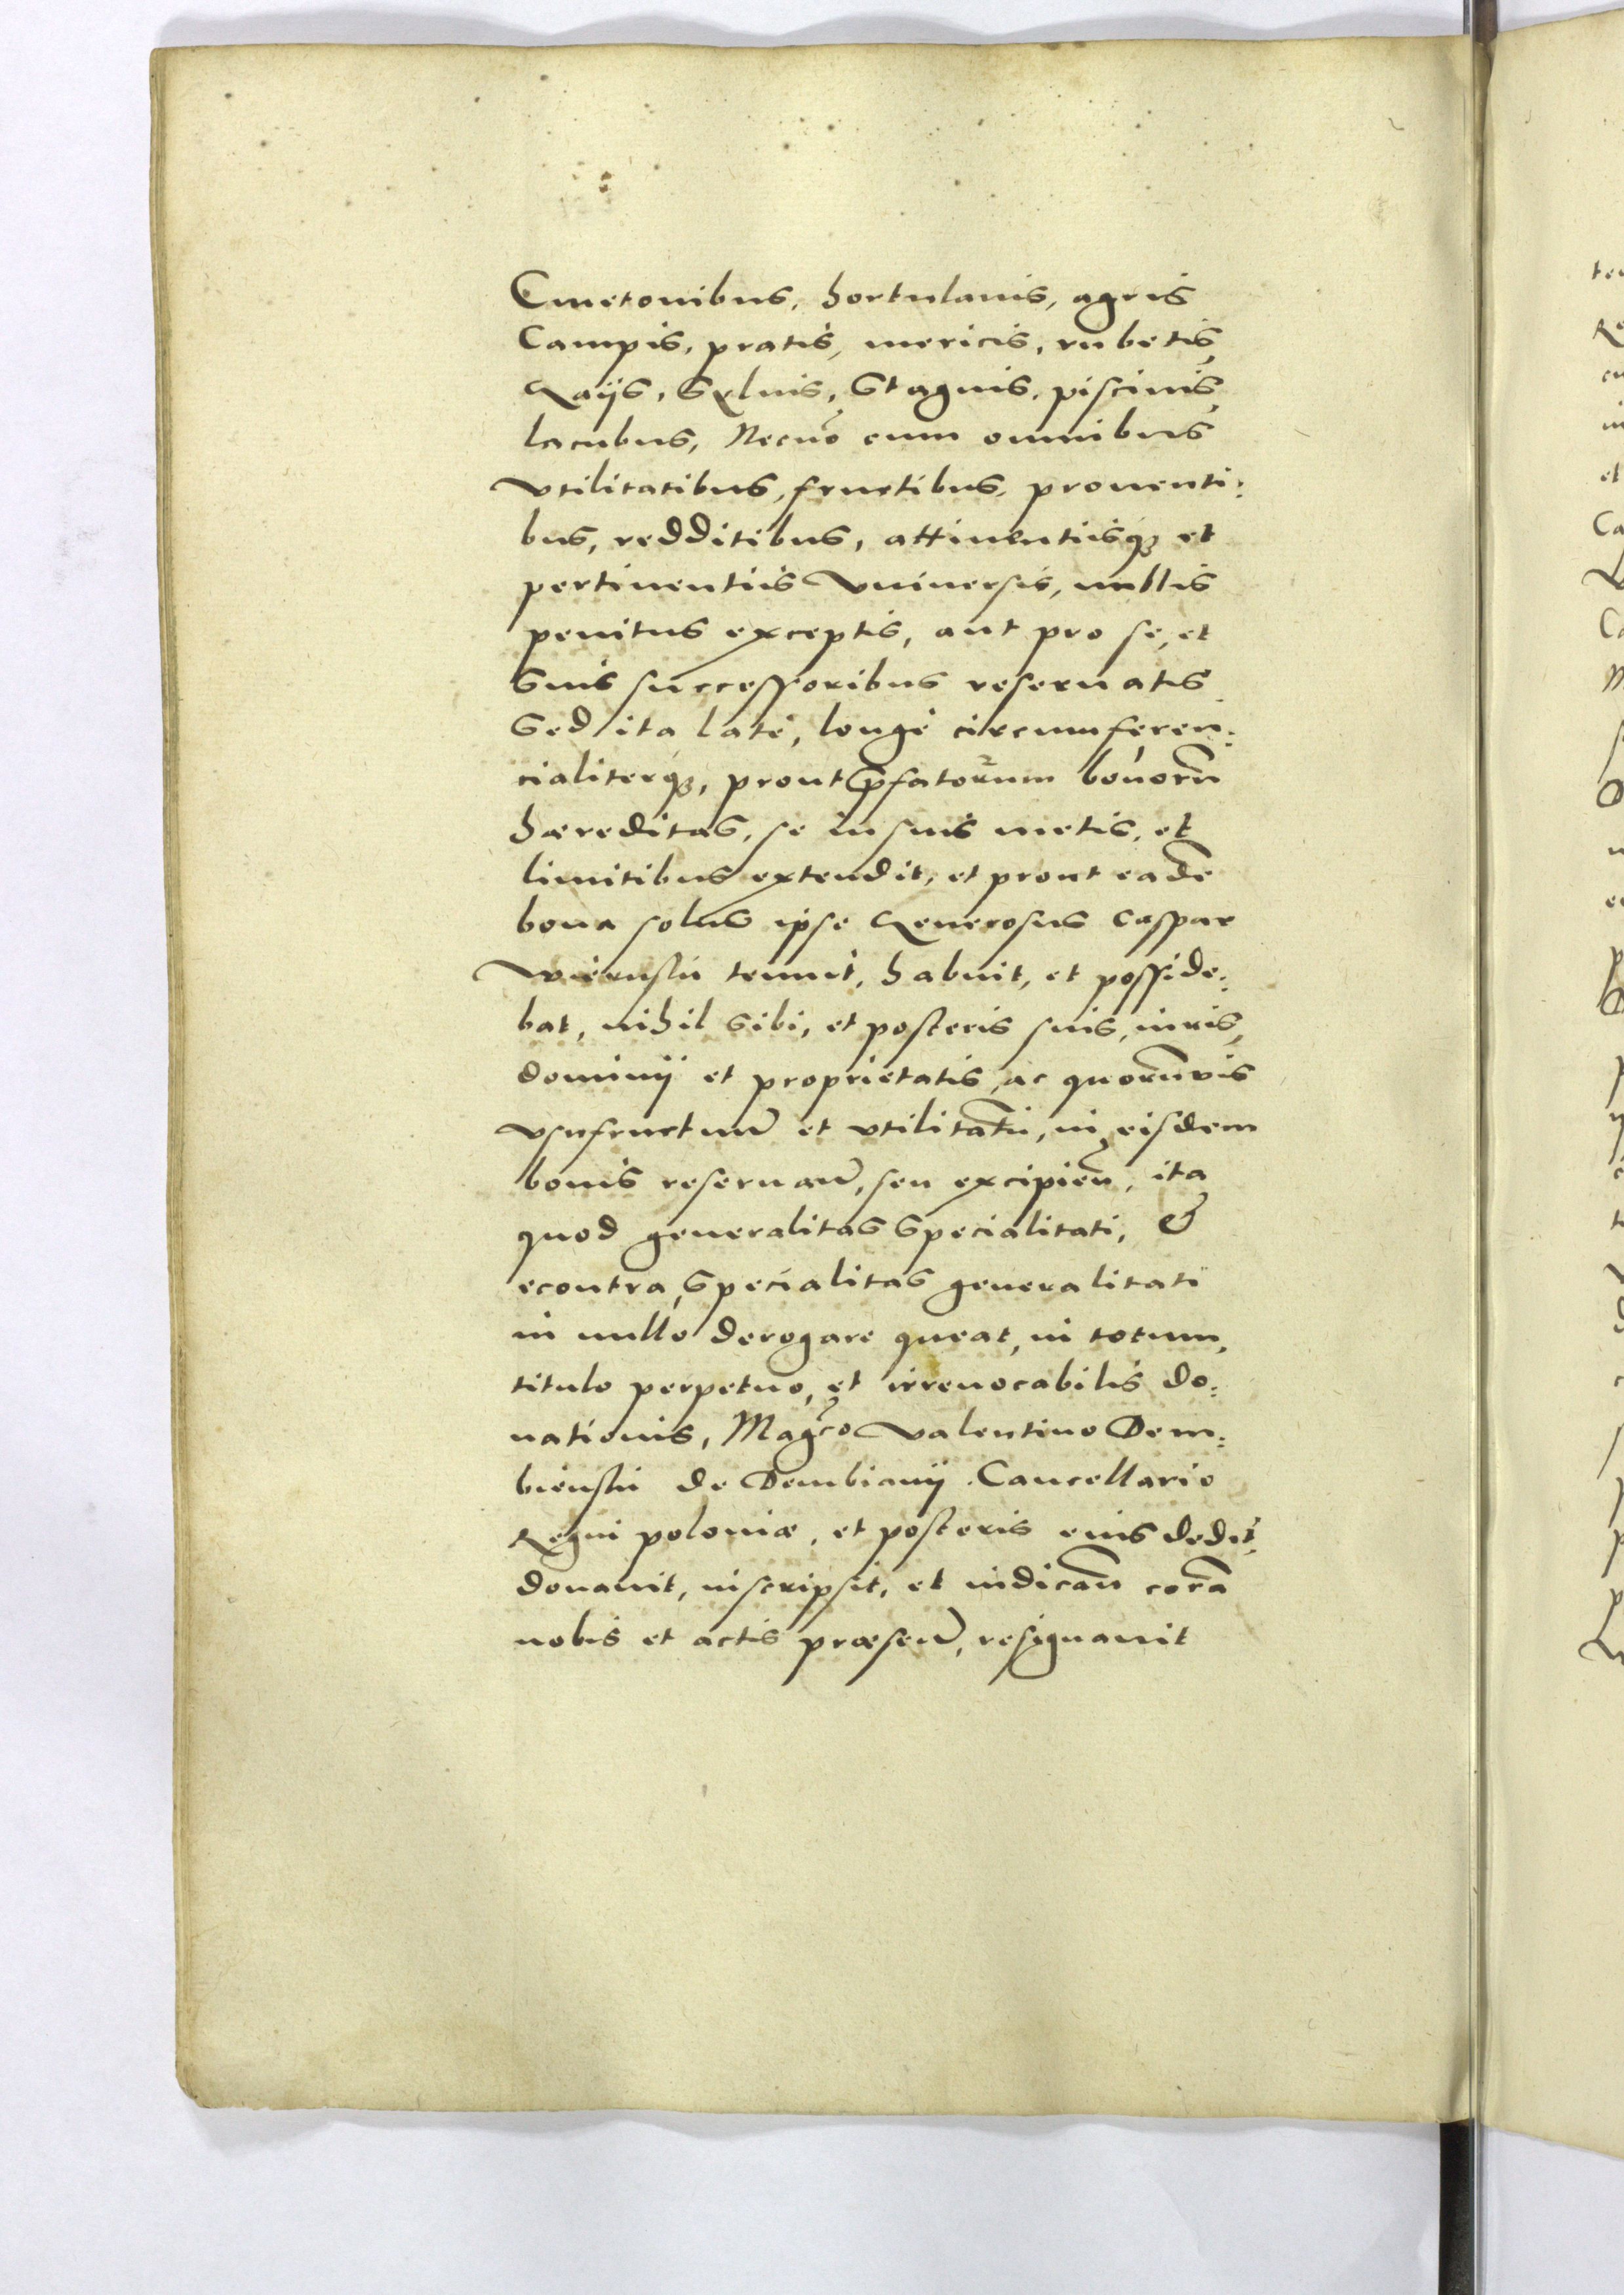 Cmetonibus, hortulanis, agris
Campis, pratis, mericis, rubetis,
Gaijs, Syluis, Stagnis, piscinis,
lacubus, Necnõ cum omnibus
vtilitatibus, fructibus, prouenti:
bus, redditibus, attinentiisq₃ et
pertinentiis Vniuersis, nullis
penitus exceptis, aut pro se, et
suis successoribus reseruatis
Sed ita latè, longè circumferen:
cialiterq₃, prout p̃fatorum bonorũ
hæreditas, se in suis metis, et
limitibus extendit, et prout eadẽ
bona solus ipse Generosus Caspar
tenuit, habuit, et posside:
bat, nihil sibi, et posteris suis, iuris,
dominij et proprietatis, ac quorũvis
vsufructuũ et vtilitatũ, in eisdem
bonis reseruañ, seu excipieñ, ita
quod generalitas Specialitati, &
econtra, Specialitas generalitati
in nullo derogare queat, in totum,
titulo perpetuo, et irreuocabilis do:
nationis, Magco Valentino Dem:
bienski de Dembiany Cancellario
Regni poloniæ, et posteris eius dedit,
donauit, inscripsit, et iudicañ corã
nobis et actis præseñ, resignauit